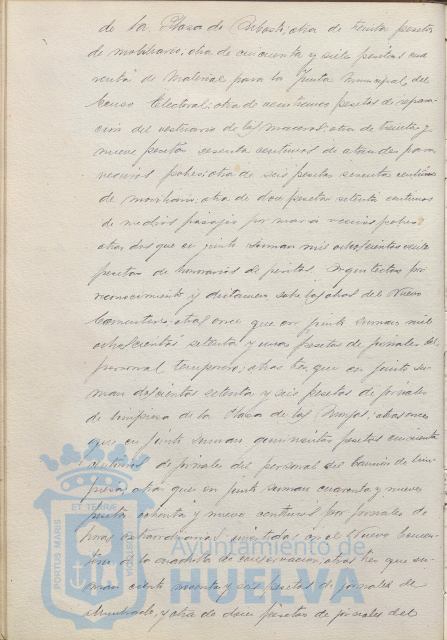 de la Plaza de Abastos; otra de treinta pesetas
de mobiliario; otra de cincuenta y siete pesetas cua
renta de material para la Junta Municipal del
Censo Electoral; otra de veintiuna pesetas de repara
ción del vestuario de los maceros; otra de treinta y
nueve pesetas sesenta centimos de ataudes para
vecinos pobres; otra de seis pesetas sesenta centimos
de mobiliario; otra de doce pesetas setenta centimos
de medios pasajes por mar a vecinos pobres
otras dos que en junto suman mil ochocientas veinte
pesetas de honorarios de peritos Arquitectos por
reconocimiento y dictamen sobre las obras del Nuevo
Cementerio; otras once que en junto suman mil
ochocientas setenta y unas pesetas de jornales del
personal temporero; otras tres que en junto su
man doscientas setenta y seis pesetas de jornales
de limpieza de la Plaza de las Monjas; otras once
que en junto suman quinientas pesetas cincuenta
centimos de jornales del personal del Camion de lim
pieza; otras que en junto suman cuarenta y nueve
pesetas ochenta y nueve centimos por jornales de
horas extraordinarias invertidas en el Nuevo Cemen
terio de la cuadrilla de conservación; otras tres que su
man ciento noventa y seis pesetas de jornales de
alumbrado; y otra de doce pesetas de jornales del
PORTUS MARIS ET TERRAE CUSTODIA
Ayuntamiento de
HUELVA